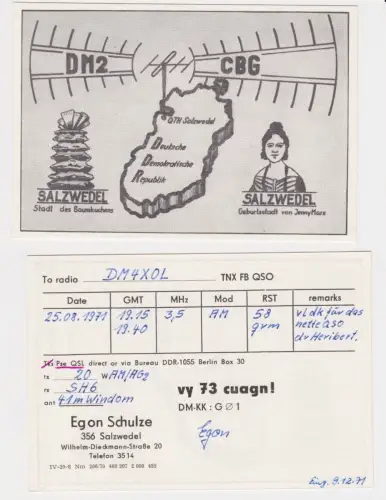 DM2 CBG
QTH Salzwedel
Deutsche
Demokratische
Republik
SALZWEDEL
Stadt des Baumkuchens
SALZWEDEL
Geburtsstadt von Jenny Marx
To radio DM4XOL TNX FB QSO
Date GMT MHz Mod RST remarks
25.08.1971 19.15 3,5 AM 58 vl dk für das
19.40 qrm nette qso
dr Heribert.
Tks Pse QSL direct or via Bureau DDR-1055 Berlin Box 30
ts 20 W AM/
rs SH6
ant 41m Windom
vy 73 cuagn!
DM-KK: G Ø 1
Egon Schulze
356 Salzwedel
Wilhelm-Dieckmann-Straße 20
Telefon 3514
Egon
Eing. 9.12.71